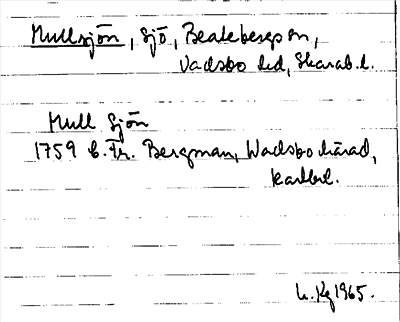 Mullsjön, sjö, Beatebergs sn,
Vadsbo hd, Skarab. l.
Mull Sjön
1759 C. Fr. Bergman, Wadsbo härad,
kartbl.
1965.